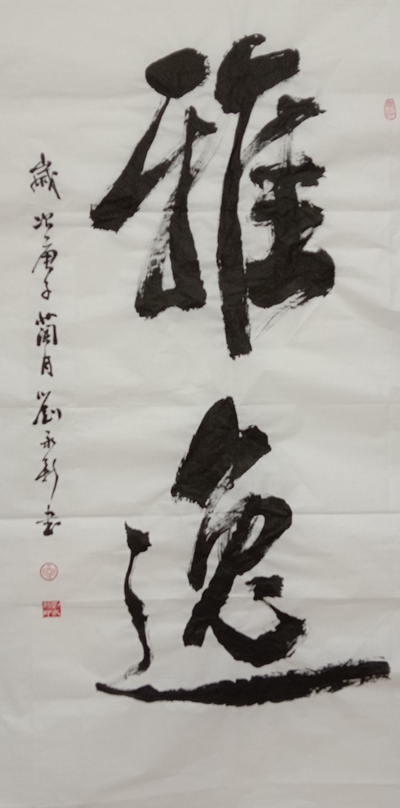 雅逸
歲次庚子蘭月劉永新書